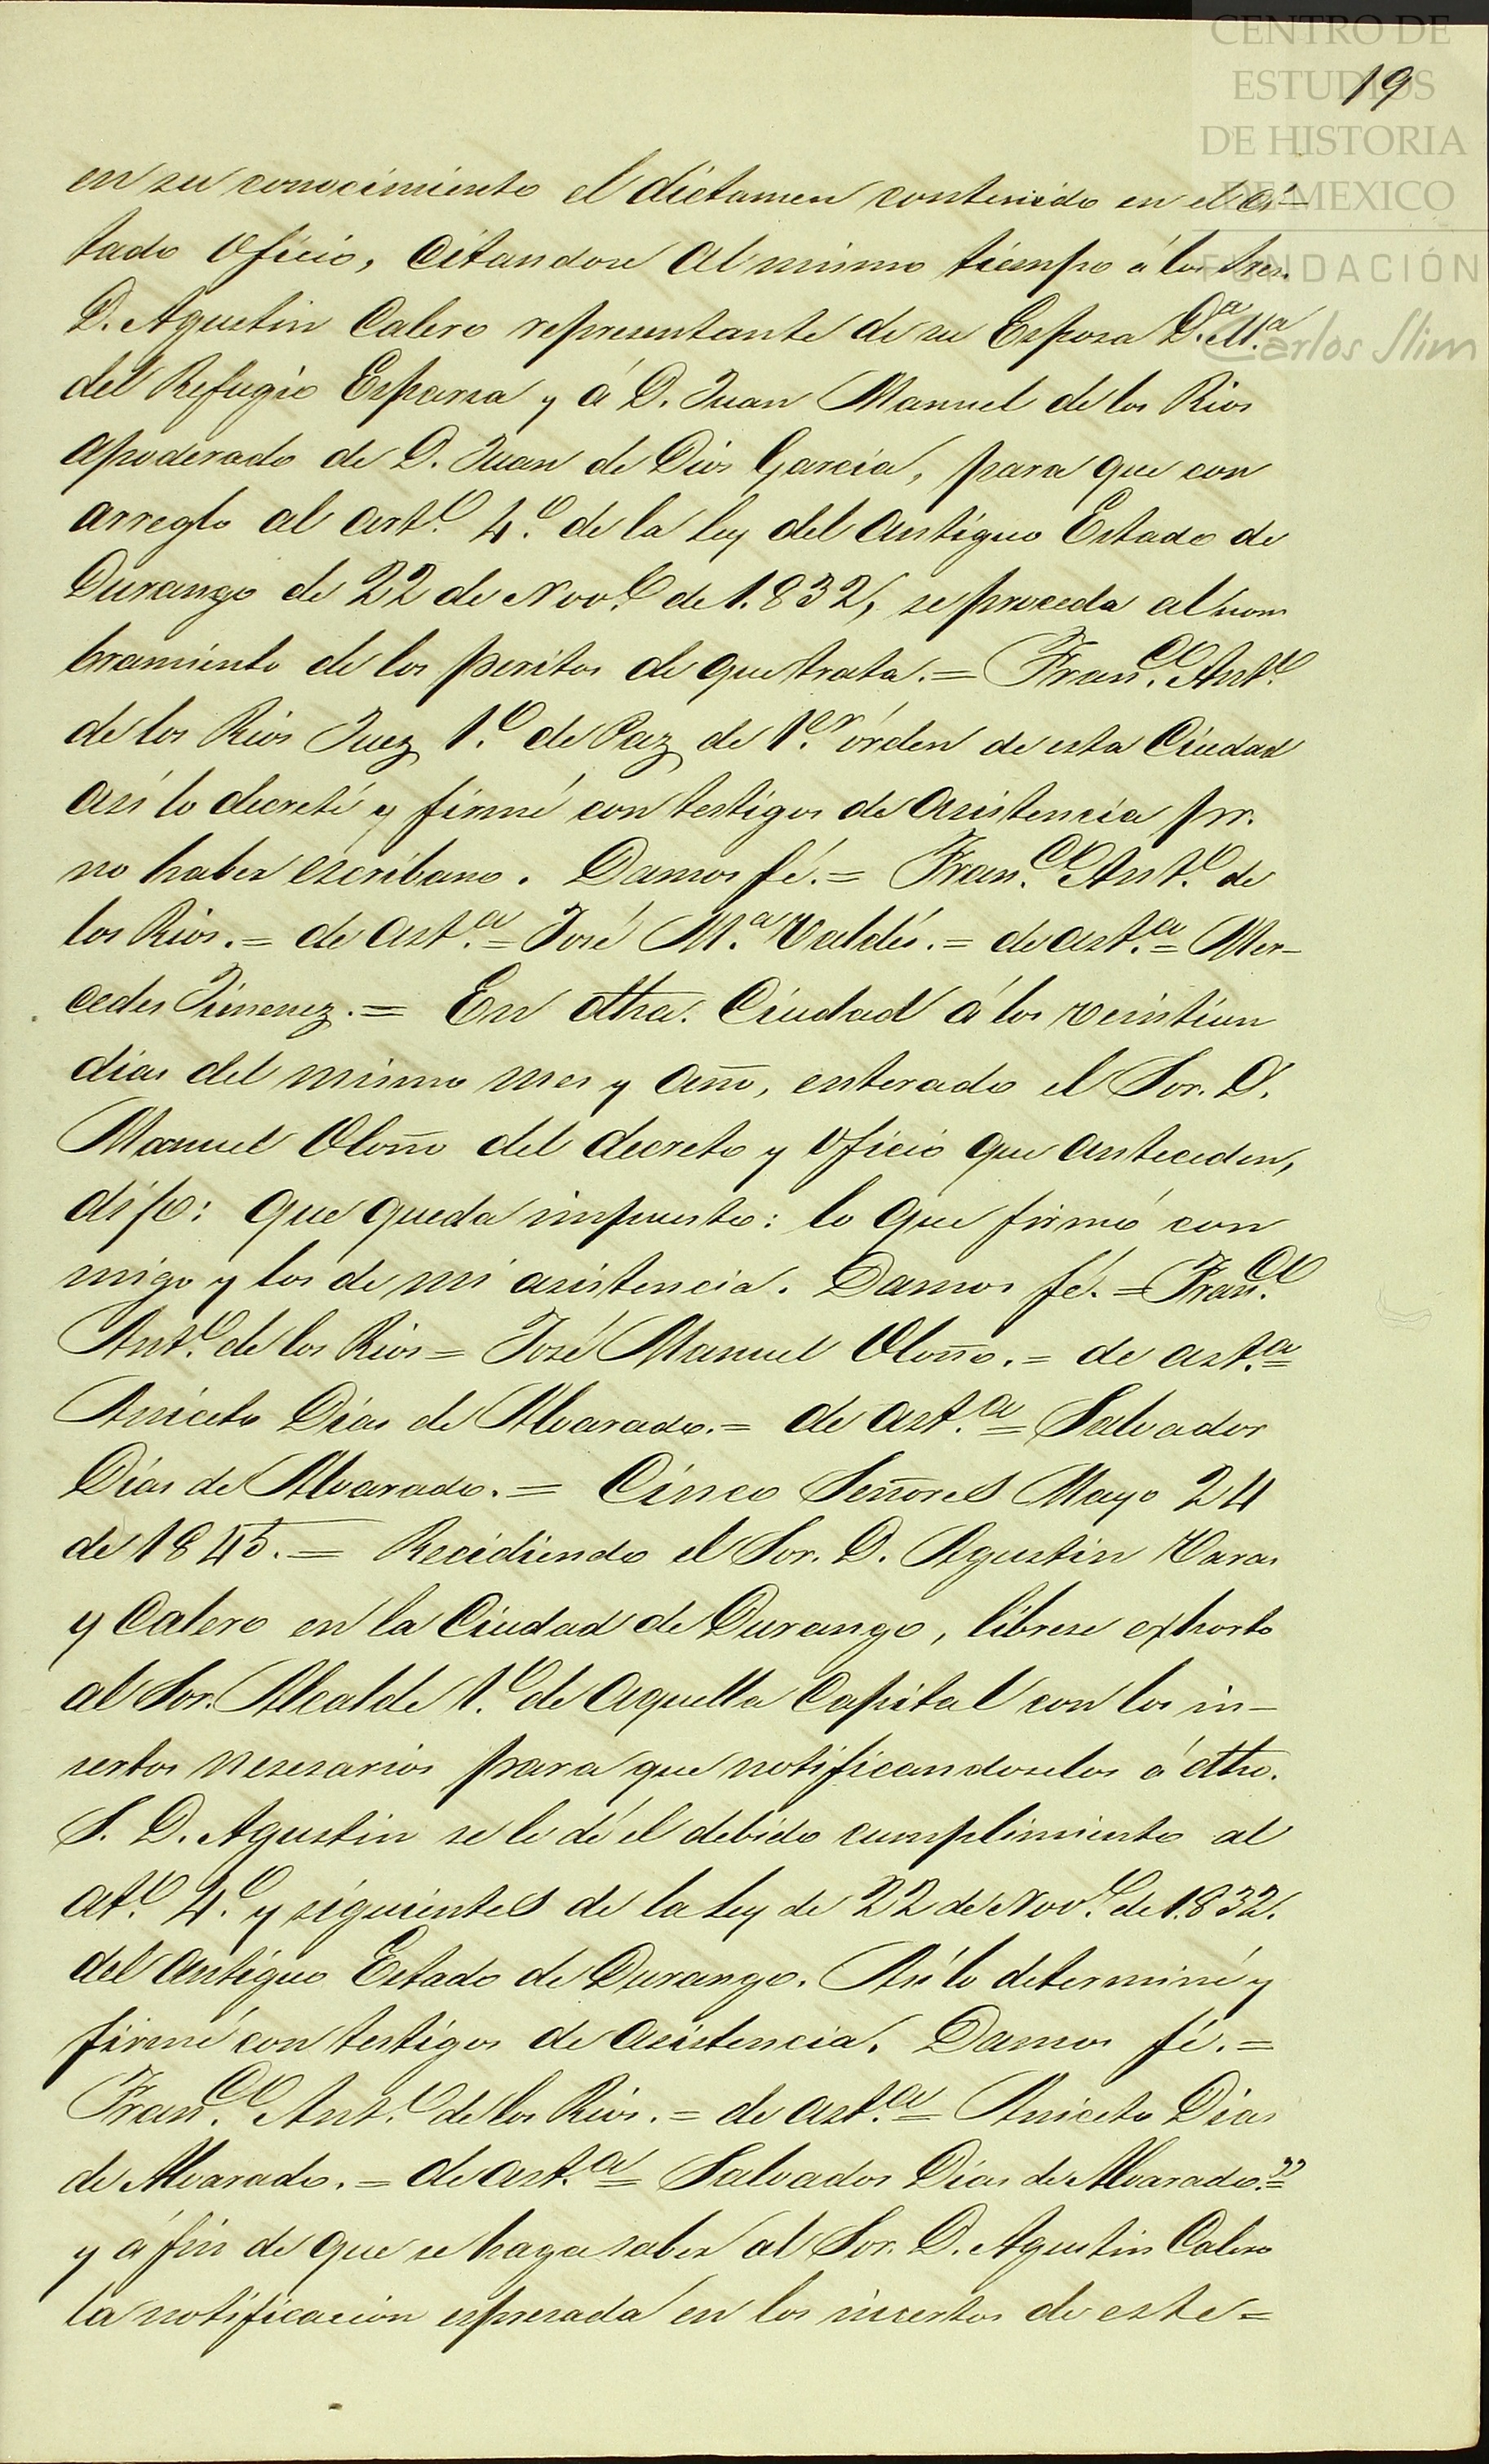 CENTRO DE
ESTUDIOS
DE HISTORIA
DE MEXICO
FUNDACIÓN
Carlos Slim
19
en su conocimiento el dictamen contenido en el ci=
tado oficio, citandose al mismo tiempo á los Sres.
D. Agustin Calero representante de su Esposa D.ª M.ª
del Refugio Esparza y á D. Juan Manuel de los Rios
apoderado de D. Juan de Dios Garcia, para que con
arreglo al art.º 4.º de la ley del antiguo Estado de
Durango de 22 de Nov.e de 1.832, se proceda al nom
bramiento de los peritos de que trata.= Fran.co Ant.º
de los Rios Juez 1.º de Paz de 1.er órden de esta Ciudad
así lo decreté y firmé con testigos de asistencia pr.
no haber escribano. Damos fé.= Fran.co Ant.º de
los Rios.= de ast.ª= José M.ª Valdés.= de ast.ª= Mer-
cedes Jimenez.= En dha. Ciudad á los veintiun
dias del mismo mes y año, enterado el Sor. D.
Manuel Oloño del decreto y oficio que anteceden,
dijo: que queda impuesto: lo que firmó con
migo y los de mi asistencia. Damos fé.= Fran.co
Ant.º de los Rios= José Manuel Oloño.= de ast.ª=
Aniceto Dias de Alvarado.= de ast.ª= Salvador
Dias de Alvarado.= Cinco Señores Mayo 24
de 1845.= Recidiendo el Sor. D. Agustin Varas
y Calero en la Ciudad de Durango, librese exhorto
al Sor. Alcalde 1.º de aquella Capital con los in-
sertos nesesarios para que notificandoselos á dho.
S. D. Agustin se le dé el debido cumplimiento al
at.º 4.º y siguientes de la ley de 22 de Nov.e de 1.832.
del antiguo Estado de Durango. Así lo determiné y
firmé con testigos de asistencia. Damos fé.=
Fran.co Ant.º de los Rios.= de ast.ª= Aniceto Dias
de Alvarado.= de ast.ª= Salvador Dias de Alvarado."=
y á fin de que se haga saber al Sor. D. Agustin Calero
la notificacion espresada en los insertos de este=